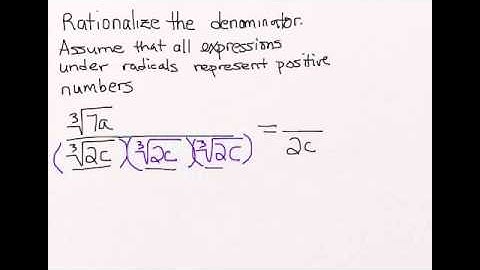 Rationalize the denominator.
Assume that all expressions
under radicals represent positive
numbers
∛7a
(∛2c)(∛2c)(∛2c) = /2c